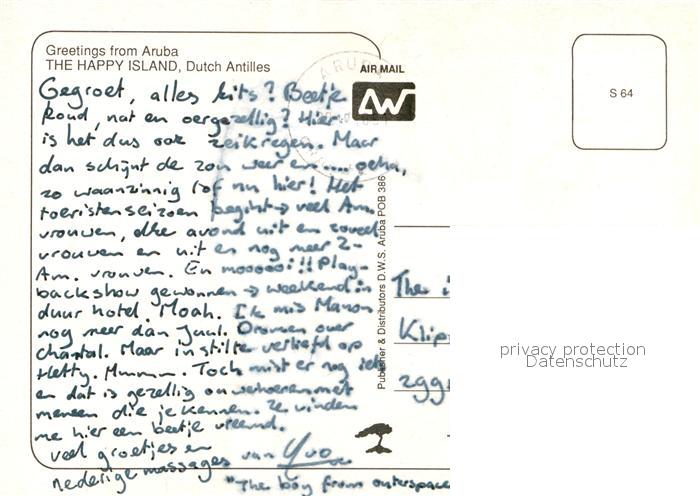 Greetings from Aruba
THE HAPPY ISLAND, Dutch Antilles
AIR MAIL
ARUBA
AW
S 64
Gegroet, alles kits? Beetje
koud, nat en oergezellig? Hier
is het dus ook zeikregen. Maar
dan schijnt de zon weer en..... oeha,
zo waanzinnig tof nu hier! Het
toeristenseizoen begint → veel Am.
vrouwen, elke avond uit en zoveel
vrouwen en uit en nog meer Z-
Am. vrouwen. En moooooi!! Play-
backshow gewonnen → weekend in
duur hotel. Moah. Ik mis Manon
nog meer dan Juul. Dromen over
chantal. Maar in stilte verliefd op
Hetty. Mmmm. Toch mist er nog iets
en dat is gezellig met
mensen die je kennen. Ze vinden
me hier een beetje vreemd.
veel groetjes en
nederige massages van Yvo
"The boy from outerspace
Publisher & Distributors D.W.S. Aruba POB 386
Theo
Klip
2991
privacy protection
Datenschutz